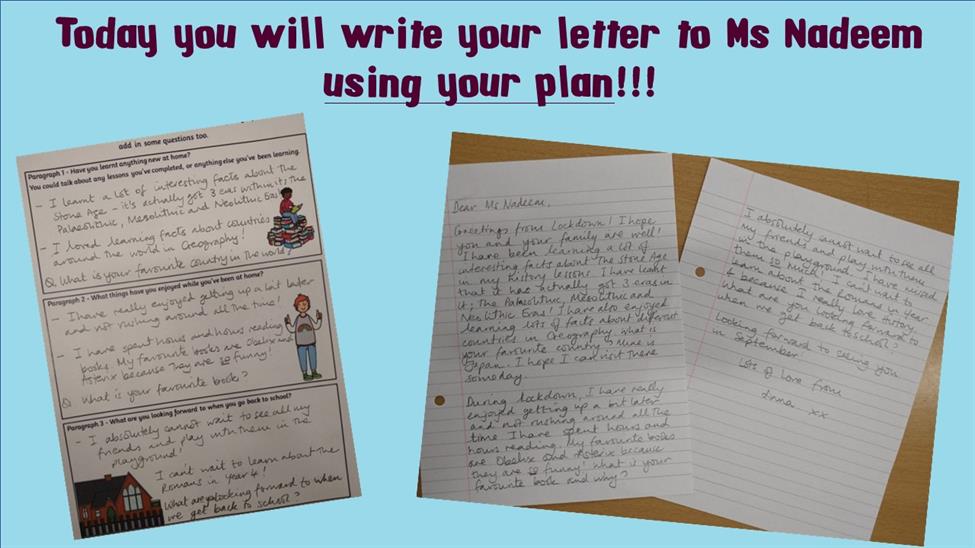 Today you will write your letter to Ms Nadeem
using your plan!!!
add in some questions too.
Paragraph 1 - Have you learnt anything new at home?
You could talk about any lessons you've completed, or anything else you've been learning.
- I learnt a lot of interesting facts about the
Stone Age - it's actually got 3 eras within it, the
Palaeolithic, Mesolithic and Neolithic Eras!
- I loved learning facts about countries
around the world in Geography!
Q What is your favourite country in the world?
Paragraph 2 - What things have you enjoyed while you've been at home?
- I have really enjoyed getting up a bit later
and not rushing around all the time!
- I have spent hours and hours reading
books. My favourite books are Obelix and
Asterix because they are so funny!
Q What is your favourite book?
Paragraph 3 - What are you looking forward to when you go back to school?
- I absolutely cannot wait to see all my
friends and play with them in the
playground!
I can't wait to learn about the
Romans in Year 4!
What are you looking forward to when
we get back to school?
Dear Ms Nadeem,
Greetings from Lockdown! I hope
you and your family are well!
I have been learning a lot of
interesting facts about the Stone Age
in my history lessons. I have learnt
that it has actually got 3 eras in
it; the Palaeolithic, Mesolithic and
Neolithic Eras! I have also enjoyed
learning lots of facts about different
countries in Geography. What is
your favourite country? Mine is
Japan. I hope I can visit there
someday.
During lockdown, I have really
enjoyed getting up a bit later
and not rushing around all the
time. I have spent hours and
hours reading. My favourite books
are Obelix and Asterix because
they are so funny! What is your
favourite book and why?
I absolutely cannot wait to see all
my friends and play with them
in the playground. I have missed
them so much! I can't wait to
learn about the Romans in Year
4 because I really love history.
What are you looking forward to
when we get back to school?
Looking forward to seeing you
in September!
Lots of love from
Anna xx